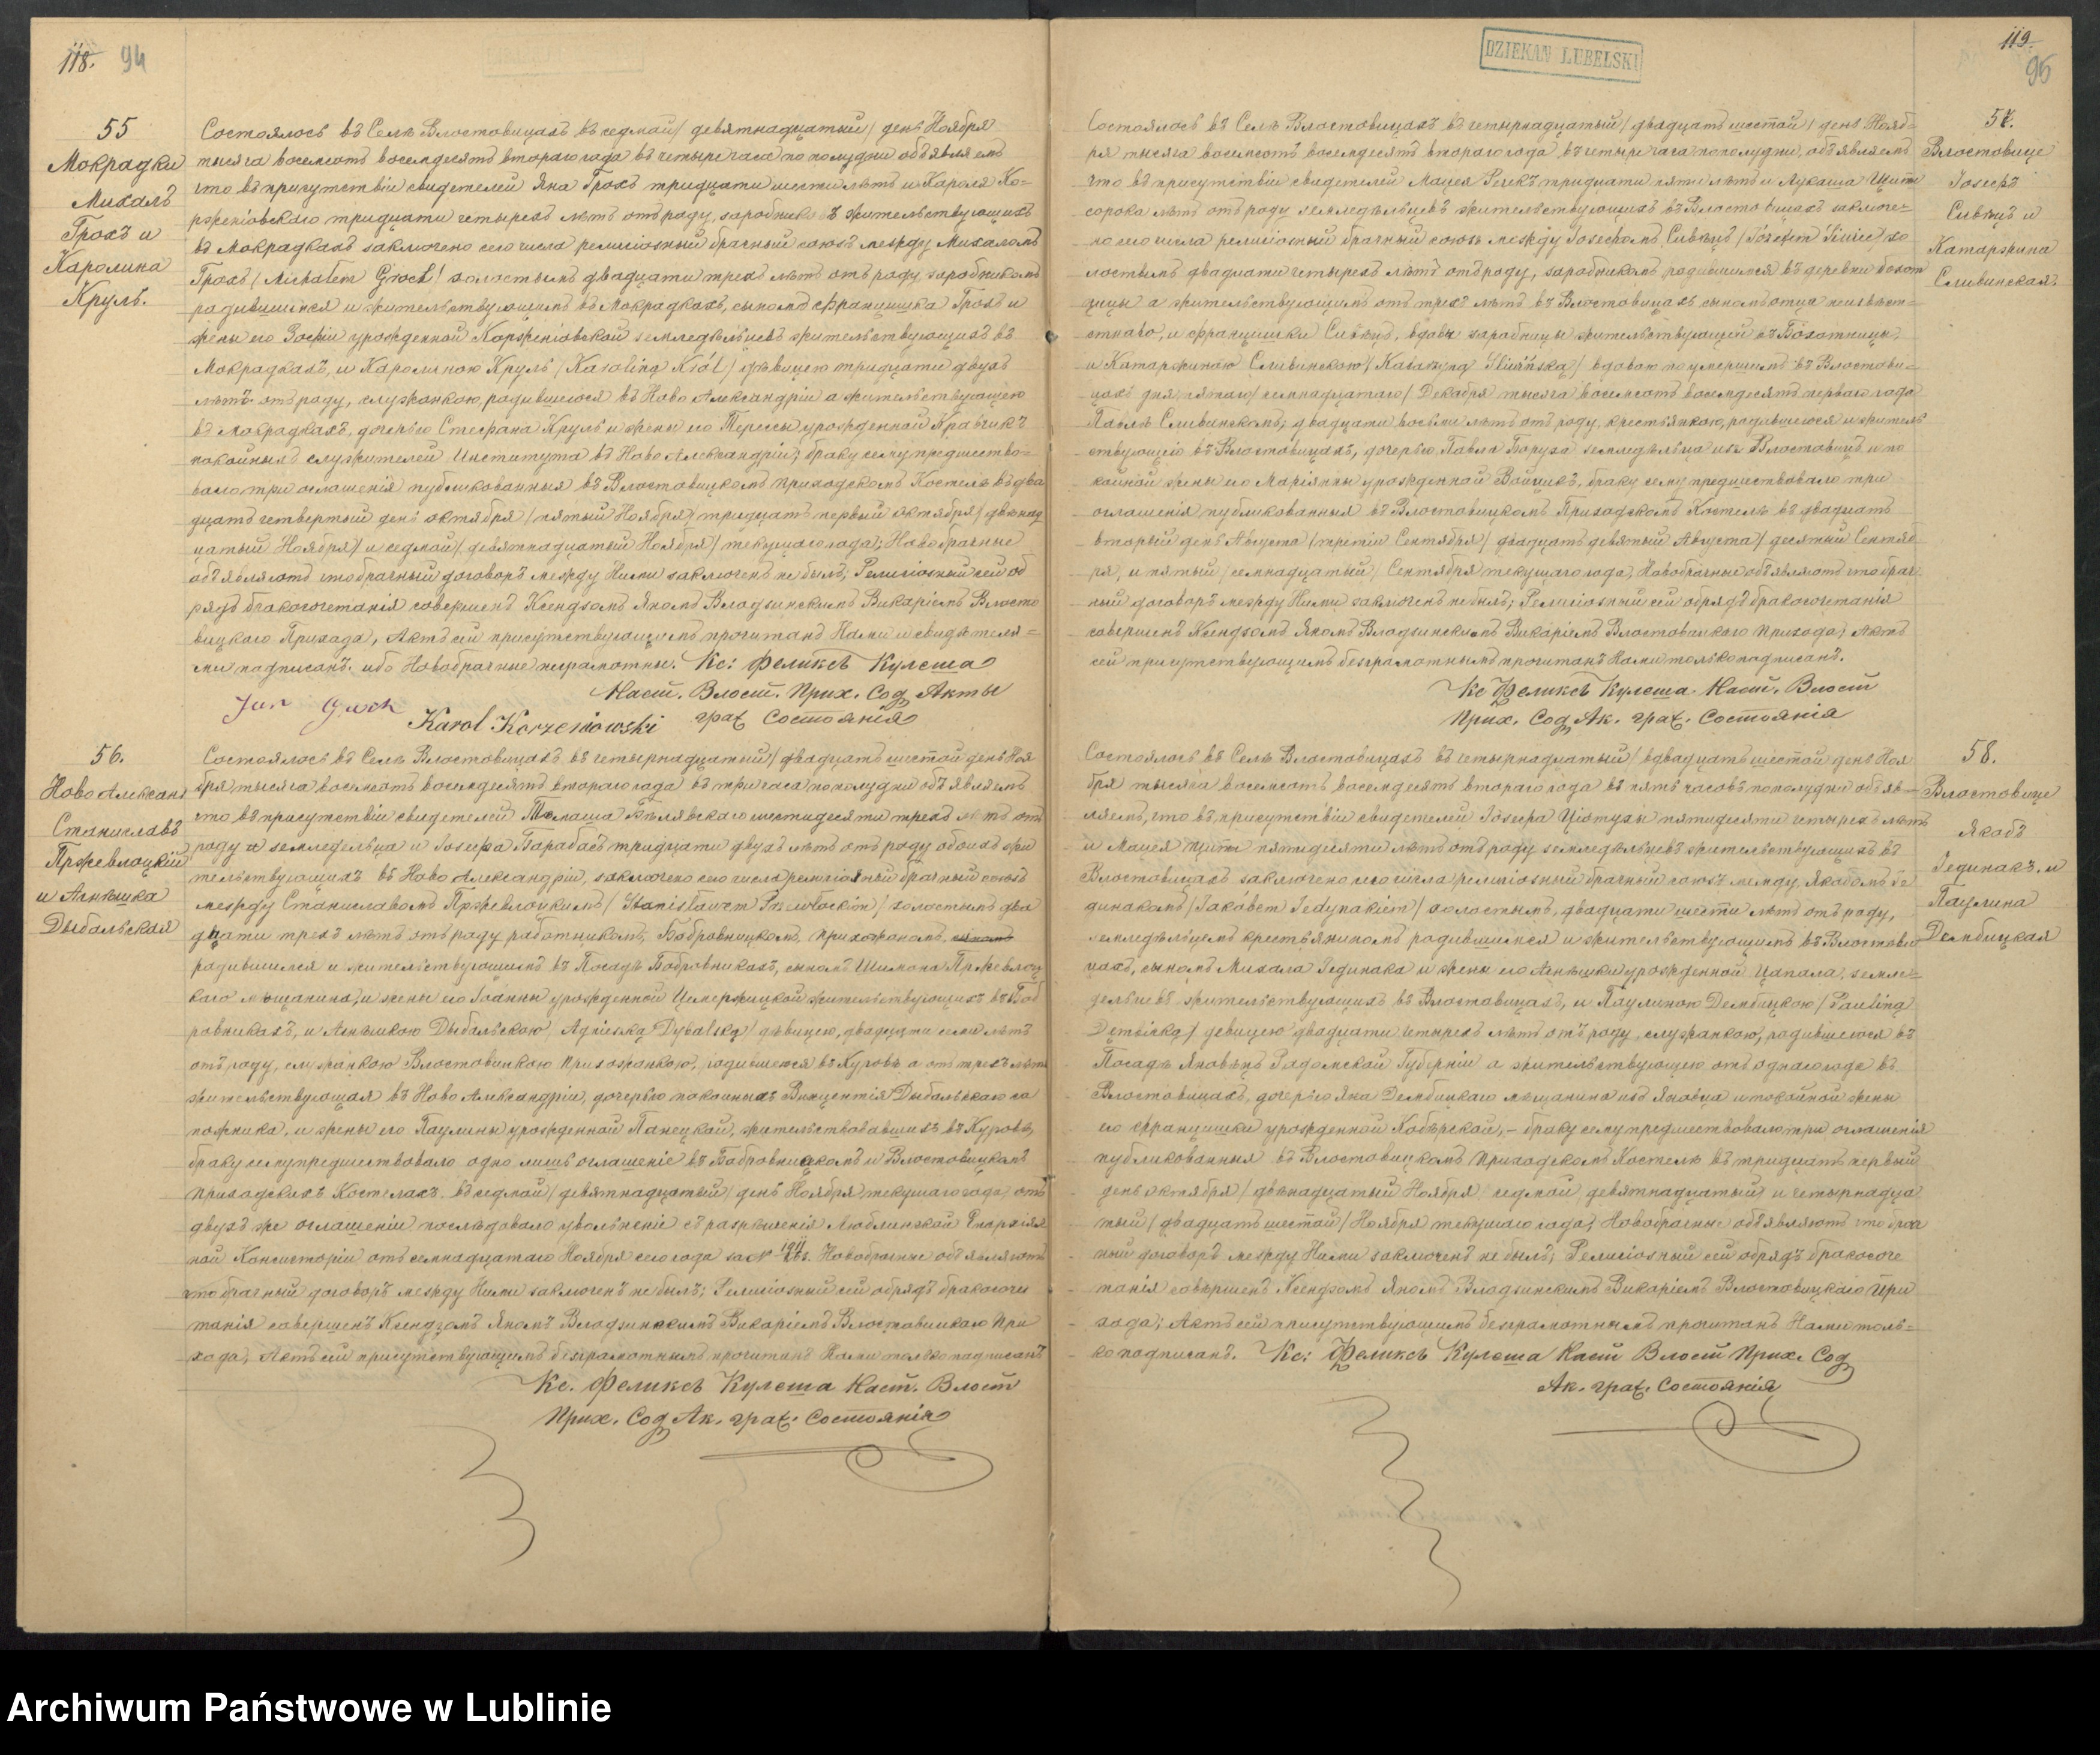 118. 94
55
Мокрадки
Михалъ
Грохъ и
Каролина
Круль.
Состоялось въ Селѣ Влостовицахъ въ седмый / девятнадцатый / день Ноября
тысяча восемсотъ восемдесятъ втораго года въ четыре часа по полудни объявляемъ
что въ присутствіи свидетелей Яна Грохъ тридцати шести лѣтъ и Кароля Ко-
рженіовскаго тридцати четырехъ лѣтъ отъ роду, заробниковъ жительствующихъ
въ Мокрадкахъ заключено сего числа религіозный брачный союзъ между Михаломъ
Грохъ / Michałem Groch / холостымъ двадцати трехъ лѣтъ отъ роду заробникомъ
родившимся и жительствующимъ въ Мокрадкахъ, сыномъ Францишка Грохъ и
жены его Зофіи урожденной Корженіовской земледѣльцевъ жительствующихъ въ
Мокрадкахъ, и Каролиною Круль / Karoliną Król / дѣвицею тридцати двухъ
лѣтъ отъ роду, служанкою, родившеюся въ Ново Александріи а жительствующею
въ Мокрадкахъ, дочерью Стефана Круль и жены его Тересы урожденной Кравчикъ
покойныхъ служителей Института въ Ново Александріи; браку сему предшество-
вало три оглашенія публикованныя въ Влостовицкомъ Приходскомъ Костелѣ въ два
дцать четвертый день октября / пятый Ноября / тридцать первый октября / двѣнад
цатый Ноября / и седмой / девятнадцатый Ноября / текущаго года; Новобрачные
объявляютъ что брачный договоръ между Ними заключенъ не былъ; Религіозный сей об
рядъ бракосочетанія совершенъ Ксендзомъ Яномъ Владзинскимъ Викаріемъ Влосто
вицкаго Прихода, Актъ сей присутствующимъ прочитанъ Нами и свидѣтеля=
ми подписанъ, ибо Новобрачные неграмотны. Кс: Феликсъ Кулеша
Наст. Влост. Прих. Сод Акты
Jan Groch Karol Korzeniowski граж. Состоянія
56.
Ново Александ
Станиславъ
Пржевлоцкій
и Агнѣшка
Дыбальская
Состоялось въ Селѣ Влостовицахъ въ четырнадцатый / двадцать шестой день Ноя
бря тысяча восемсотъ восемдесятъ втораго года въ три часа по полудни объявляемъ
что въ присутствіи свидетелей Томаша Бѣлявскаго шестидесяти трехъ лѣтъ отъ
роду и земледельца и Іосифа Барабасъ тридцати двухъ лѣтъ отъ роду обоихъ жи
тельствующихъ въ Ново Александріи, заключено сего числа религіозный брачный союзъ
между Станиславомъ Пржевлоцкимъ / Stanisławem Przewłockim / холостымъ два
дцати трехъ лѣтъ отъ роду работникомъ, Бобровницкомъ, прихожаномъ,
родившимся и жительствующимъ въ Посадѣ Бобровникахъ, сыномъ Шимона Пржевлоц
каго мѣщанина, и жены его Іоанны урожденной жительствующихъ въ Боб
ровникахъ, и Агнѣшкою Дыбальскою, Agnieszką Dybalską / дѣвицею, двадцати семи лѣтъ
отъ роду, служанкою Влостовицкою прихожанкою, родившеюся въ Куровѣ а отъ трехъ лѣтъ
жительствующая въ Ново Александріи, дочерью покойныхъ Винцентія Дыбальскаго са
пожника, и жены его Паулины урожденной Панецкой, жительствовавшихъ въ Куровѣ,
браку сему предшествовало одно лишь оглашеніе въ Бобровницкомъ и Влостовицкомъ
приходскихъ Костелахъ въ седмой / девятнадцатый / день Ноября текущаго года, отъ
двухъ же оглашеніи последовало увольненіе съ разрѣшенія Люблинской Епархіаль
ной Консисторіи отъ семнадцатаго Ноября сего года за № Новобрачные объявляютъ
что брачный договоръ между Ними заключенъ не былъ; Религіозный сей обрядъ бракосоче
танія совершенъ Ксендзомъ Яномъ Владзинскимъ Викаріемъ Влостовицкаго При
хода, Актъ сей присутствующимъ безграмотнымъ прочитанъ Нами только подписанъ
Кс. Феликсъ Кулеша Наст. Влост
Прих. Сод Ак. граж. Состоянія
DZIEKAN LUBELSKI
119.
95
57.
Влостовице
Іосефъ
Сивѣцъ и
Катаржина
Сливинская.
Состоялось въ Селѣ Влостовицахъ въ четырнадцатый / двадцать шестой / день Нояб=
ря тысяча восемсотъ восемдесятъ втораго года въ четыре часа пополудни, объявляемъ
что въ присутствіи свидетелей Мацея Речекъ тридцати пяти лѣтъ и Лукаша Щипы
сорока лѣтъ отъ роду земледѣльцевъ жительствующихъ въ Влостовицахъ заключе=
но сего числа религіозный брачный союзъ между Іосефомъ Сивѣцъ / Józefem Siwiec / хо
лостымъ двадцати четырехъ лѣтъ отъ роду, заробникомъ родившимся въ деревни Бохот
ницы а жительствующимъ отъ трехъ лѣтъ въ Влостовицахъ сыномъ отца неизвѣст=
стнаго, и Францишки Сивѣцъ, вдовы заробницы жительствующей въ Бохотницы,
и Катаржиною Сливинскою / Katarzyną Śliwińską / вдовою по умершимъ въ Влостови=
цахъ дня, пятаго / семнадцатаго / Декабря тысяча восемсотъ восемдесятъ перваго года
Павлѣ Сливинскомъ; двадцати восьми лѣтъ отъ роду, крестьянкою, родившеюся и житель
ствующею въ Влостовицахъ, дочерью Павла Боруха земледѣльца изъ Влостовицъ и по
койной жены его Маріянны урожденной Войцикъ, браку сему предшествовало три
оглашенія публикованныя въ Влостовицкомъ Приходскомъ Костелѣ въ двадцать
вторый день Августа / третіи Сентября / двадцать девятый Августа / десятый Сентяб
ря, и пятый / семнадцатый / Сентября текущаго года, Новобрачные объявляютъ что брач
ный договоръ между Ними заключенъ не былъ; Религіозный сей обрядъ бракосочетанія
совершенъ Ксендзомъ Яномъ Владзинскимъ Викаріемъ Влостовицкаго Прихода; Актъ
сей присутствующимъ безграмотнымъ прочитанъ Нами только подписанъ.
Кс Феликсъ Кулеша. Наст. Влост
Прих. Сод Ак. граж. Состоянія
58.
Влостовице
Якобъ
Іединакъ, и
Паулина
Дембицкая
Состоялось въ Селѣ Влостовицахъ въ четырнадцатый / въ двадцать шестой день Ноя
бря тысяча восемсотъ восемдесятъ втораго года въ пять часовъ пополудни объяв-
ляемъ, что въ присутствіи свидетелей Іосефа пятидесяти четырехъ лѣтъ
и Мацея Щипы пятидесяти лѣтъ отъ роду земледѣльцевъ жительствующихъ въ
Влостовицахъ заключено сего числа религіозный брачный союзъ между, Якобомъ Іе
динакомъ / Jakóbem Jedynakiem / холостымъ, двадцати шести лѣтъ отъ роду,
земледѣльцемъ крестьяниномъ родившимся и жительствующимъ въ Влостови
цахъ, сыномъ Михала Іединака и жены его Агнѣшки урожденной Цапала, земле=
дельцевъ жительствующихъ въ Влостовицахъ, и Паулиною Дембицкою / Pauliną
Dębicką / девицею двадцати четырехъ лѣтъ отъ роду, служанкою, родившеюся въ
Посадѣ Яновѣцъ Радомской Губерніи а жительствующею отъ одного года въ
Влостовицахъ, дочерью Яна Дембицкаго мещанина изъ Яновца и покойной жены
его Францишки урожденной Кобѣрской, - браку сему предшествовало три оглашенія
публикованныя въ Влостовицкомъ приходскомъ Костелѣ въ тридцать первый
день октября / двѣнадцатый Ноября, седмой девятнадцатый и четырнадца
тый / двадцать шестой / Ноября текущаго года; Новобрачные объявляютъ что брач
ный договоръ между Ними заключенъ не былъ; Религіозный сей обрядъ бракосоче
танія совершенъ Ксендзомъ Яномъ Владзинскимъ Викаріемъ Влостовицкаго При
хода; Актъ сей присутствующимъ безграмотнымъ прочитанъ Нами толь=
ко подписанъ. Кс: Феликсъ Кулеша Наст Влост Прих. Сод
Ак. граж. Состоянія
Archiwum Państwowe w Lublinie